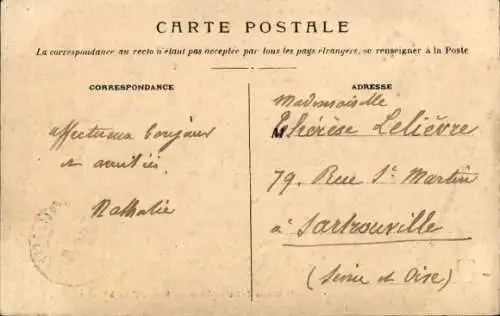 CARTE POSTALE
La correspondance au recto n'étant pas acceptée par tous les pays étrangers, se renseigner à la Poste
CORRESPONDANCE
affectueux bonjour
et amitiés.
Nathalie
ADRESSE
Mademoiselle
Thérèse Lelièvre
79. Rue St Martin
à Sartrouville
(Seine et Oise)